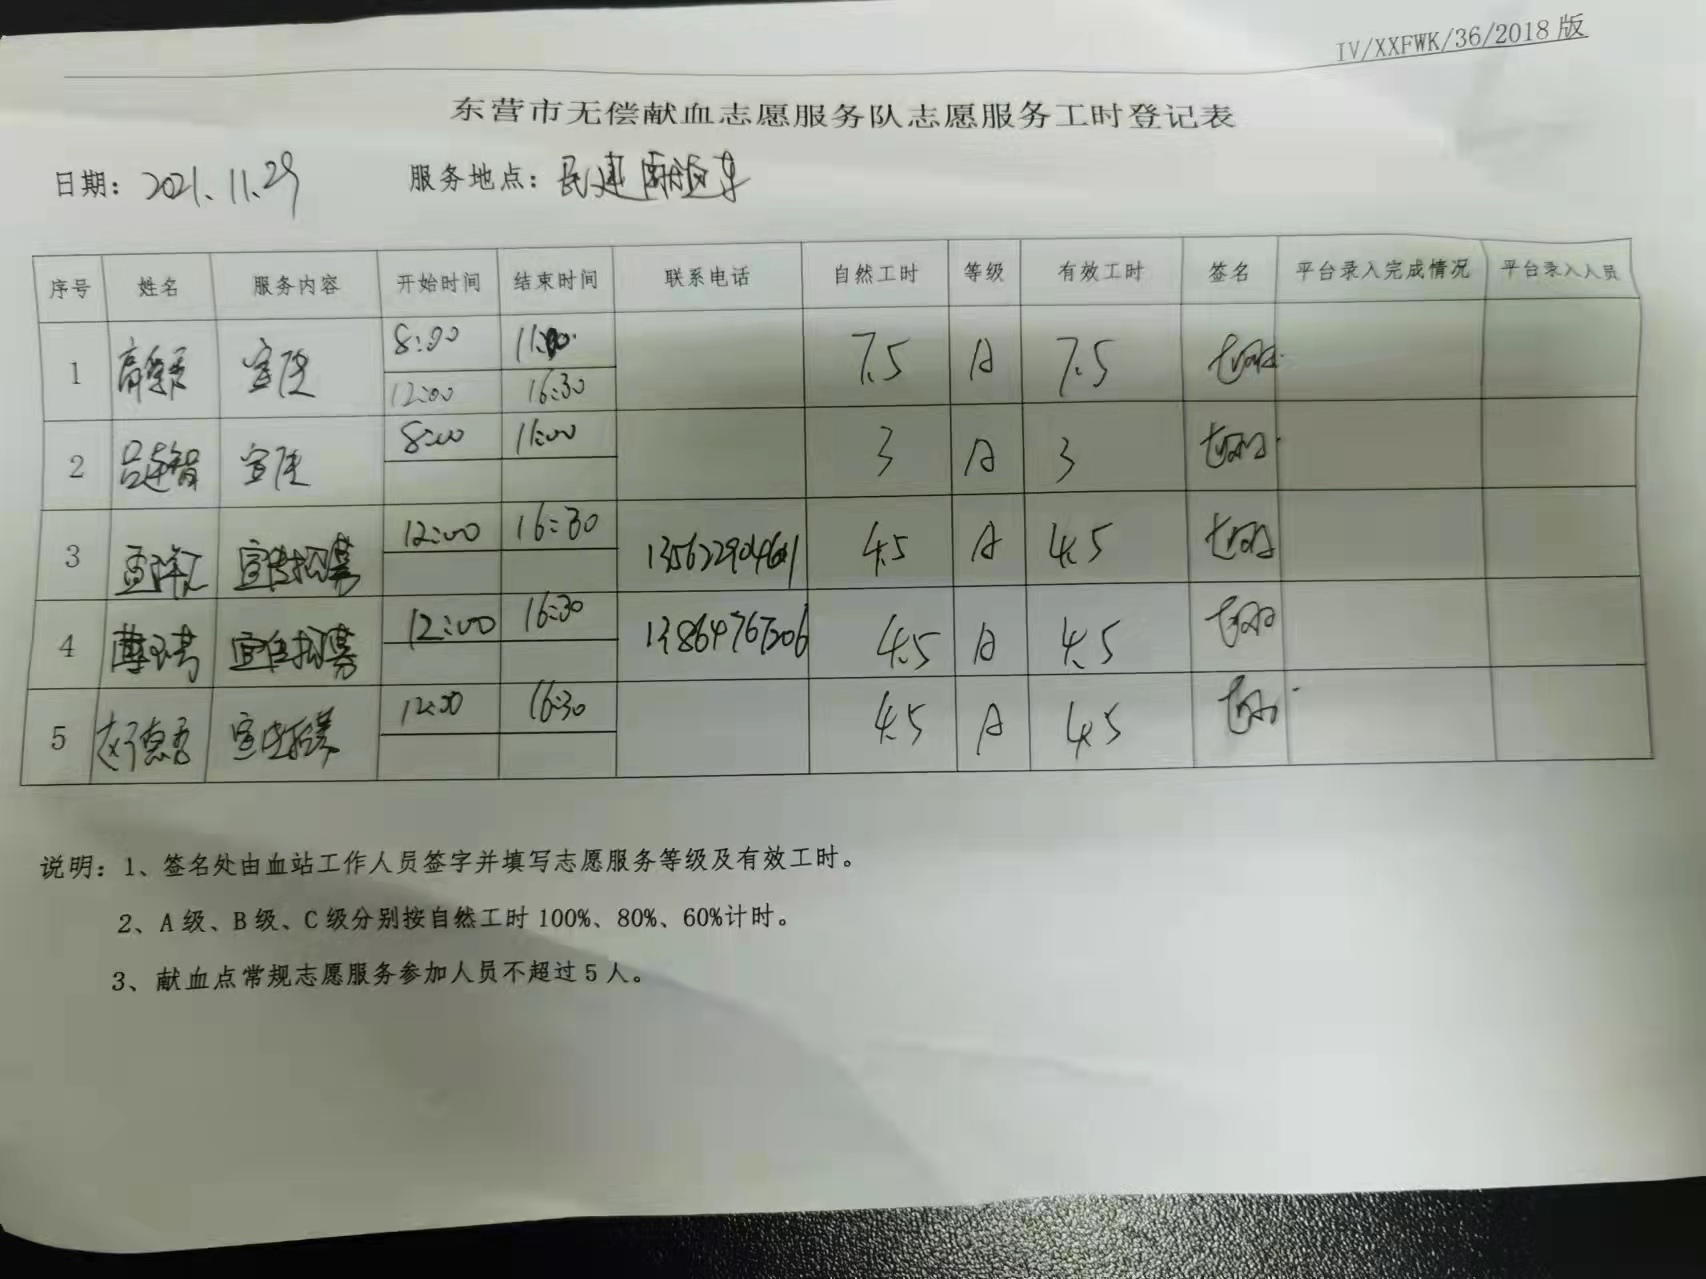 IV/XXFWK/36/2018 版
东营市无偿献血志愿服务队志愿服务工时登记表
日期: 2021.11.29 服务地点: 民建献血车
序号 姓名 服务内容 开始时间 结束时间 联系电话 自然工时 等级 有效工时 签名 平台录入完成情况 平台录入人员
1 宣传 8:00 11:00 7.5 A 7.5
12:00 16:30
2 吕连智 宣传 8:00 11:00 3 A 3
3 宣传招募 12:00 16:30 4.5 A 4.5
4 宣传招募 12:00 16:30 13864767206 4.5 A 4.5
5 赵德吾 宣传招募 12:00 16:30 4.5 A 4.5
说明: 1、签名处由血站工作人员签字并填写志愿服务等级及有效工时。
2、A 级、B 级、C 级分别按自然工时 100%、80%、60%计时。
3、献血点常规志愿服务参加人员不超过 5 人。